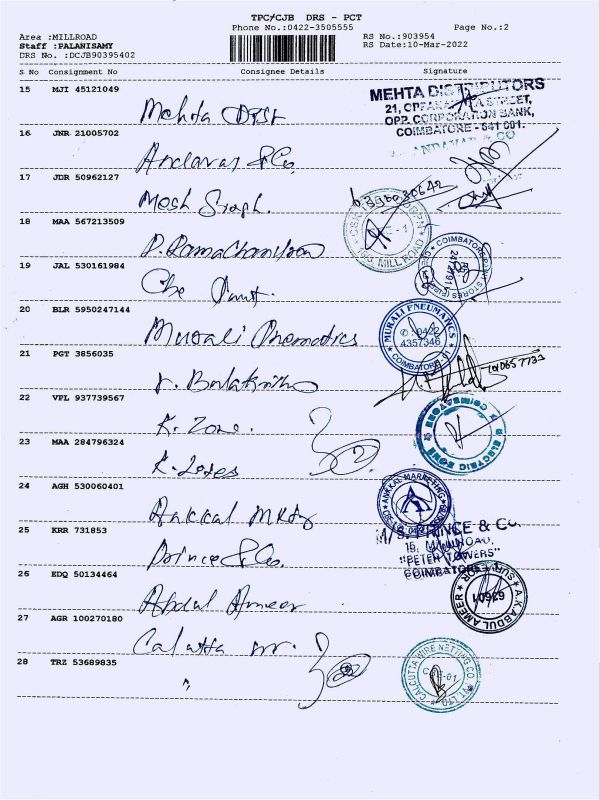 TPC/CJB DRS - PCT
Phone No.:0422-3505555 Page No.:2
Area :MILLROAD RS No.:903954
Staff :PALANISAMY RS Date:10-Mar-2022
DRS No. :DCJB90395402
S No Consignment No Consignee Details Signature
15 MJI 45121049
Mehta Dist
MEHTA DISTRIBUTORS
21, STREET,
OPP. CORPORATION BANK,
COIMBATORE - 641 001.
16 JNR 21005702
& Co.
& CO
17 JDR 50962127
Mosh Singh.
MILLROAD
18 MAA 567213509
P. Ramachandran
19 JAL 530161984
Cbe Paint.
COIMBATORE PAINT STORES
20 BLR 5950247144
Murali Pnematics
MURALI PNEUMATICS
0422
4357346
COIMBATORE
21 PGT 3856035
22 VPL 937739567
K. Zone.
ELECTRIC ZONE COIMBATORE
23 MAA 284796324
2
24 AGH 530060401
Ankkal Mktg
ANKKAL MARKETING
25 KRR 731853
Prince & Co.
M/S. PRINCE & Co.
MILLROAD,
"PETER TOWERS"
COIMBATORE
26 EDQ 50134464
Abdul Ameer
A.K.ABDULAMEER
27 AGR 100270180
Calcutta
28 TRZ 53689835
"
CALCUTTA WIRE NETTING CO.